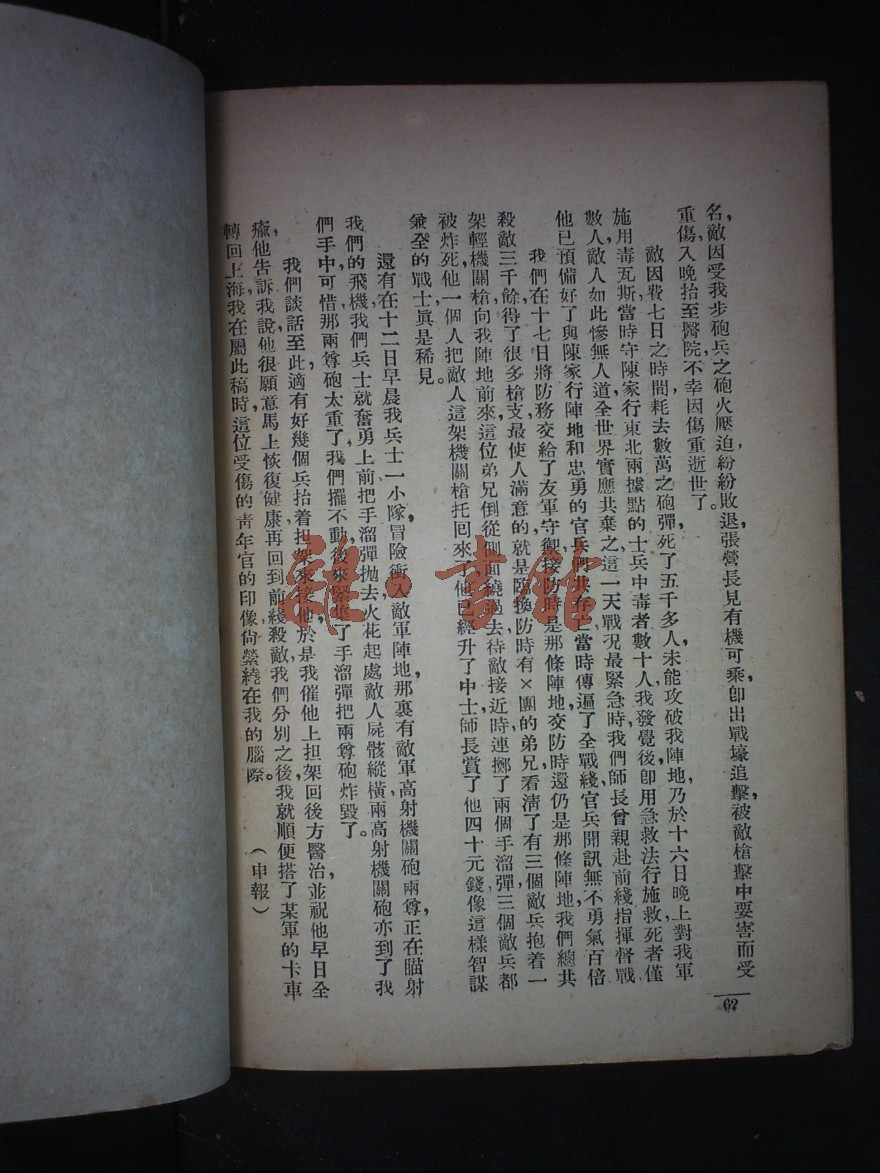 名,敵因受我步砲兵之砲火壓迫,紛紛敗退,張營長見有機可乘,卽出戰壕追擊,被敵槍擊中要害而受
重傷,入晚抬至醫院,不幸因傷重逝世了。
敵因費七日之時間,耗去數萬之砲彈,死了五千多人,未能攻破我陣地,乃於十六日晚上對我軍
施用毒瓦斯,當時守陳家行東北兩據點的士兵中毒者數十人,我發覺後卽用急救法行施救,死者僅
數人,敵人如此慘無人道,全世界實應共棄之,這一天戰況最緊急時,我們師長曾親赴前綫指揮督戰,
他已預備好了與陳家行陣地和忠勇的官兵們共存亡,當時傳遍了全戰綫,官兵聞訊,無不勇氣百倍,
我們在十七日將防務交給了友軍守禦,接防時是那條陣地,交防時還仍是那條陣地,我們總共
殺敵三千餘,得了很多槍支,最使人滿意的,就是臨換防時有×團的弟兄看淸了有三個敵兵抱着一
架輕機關槍向我陣地前來,這位弟兄倒從側面繞過去,待敵接近時,連擲了兩個手溜彈,三個敵兵都
被炸死,他一個人把敵人這架機關槍托囘來了,他已經升了中士,師長賞了他四十元錢,像這樣智謀
兼全的戰士眞是稀見。
還有在十二日早晨,我兵士一小隊冒險衝入敵軍陣地,那裏有敵軍高射機關砲兩尊,正在瞄射
我們的飛機,我們兵士就奮勇上前,把手溜彈拋去,火花起處,敵人屍骸縱橫,兩高射機關砲亦到了我
們手中,可惜那兩尊砲太重了,我們擺不動,後來緊進了手溜彈把兩尊砲炸毀了。
我們談話至此,適有好幾個兵抬着担架來接他,於是我催他上担架回後方醫治,並祝他早日全
癒,他告訴我說,他很願意馬上恢復健康,再回到前綫殺敵,我們分別之後,我就順便搭了某軍的卡車
轉回上海,我在屬此稿時,這位受傷的靑年官的印像尙縈繞在我的腦際。
(申報)
62
雜·書館